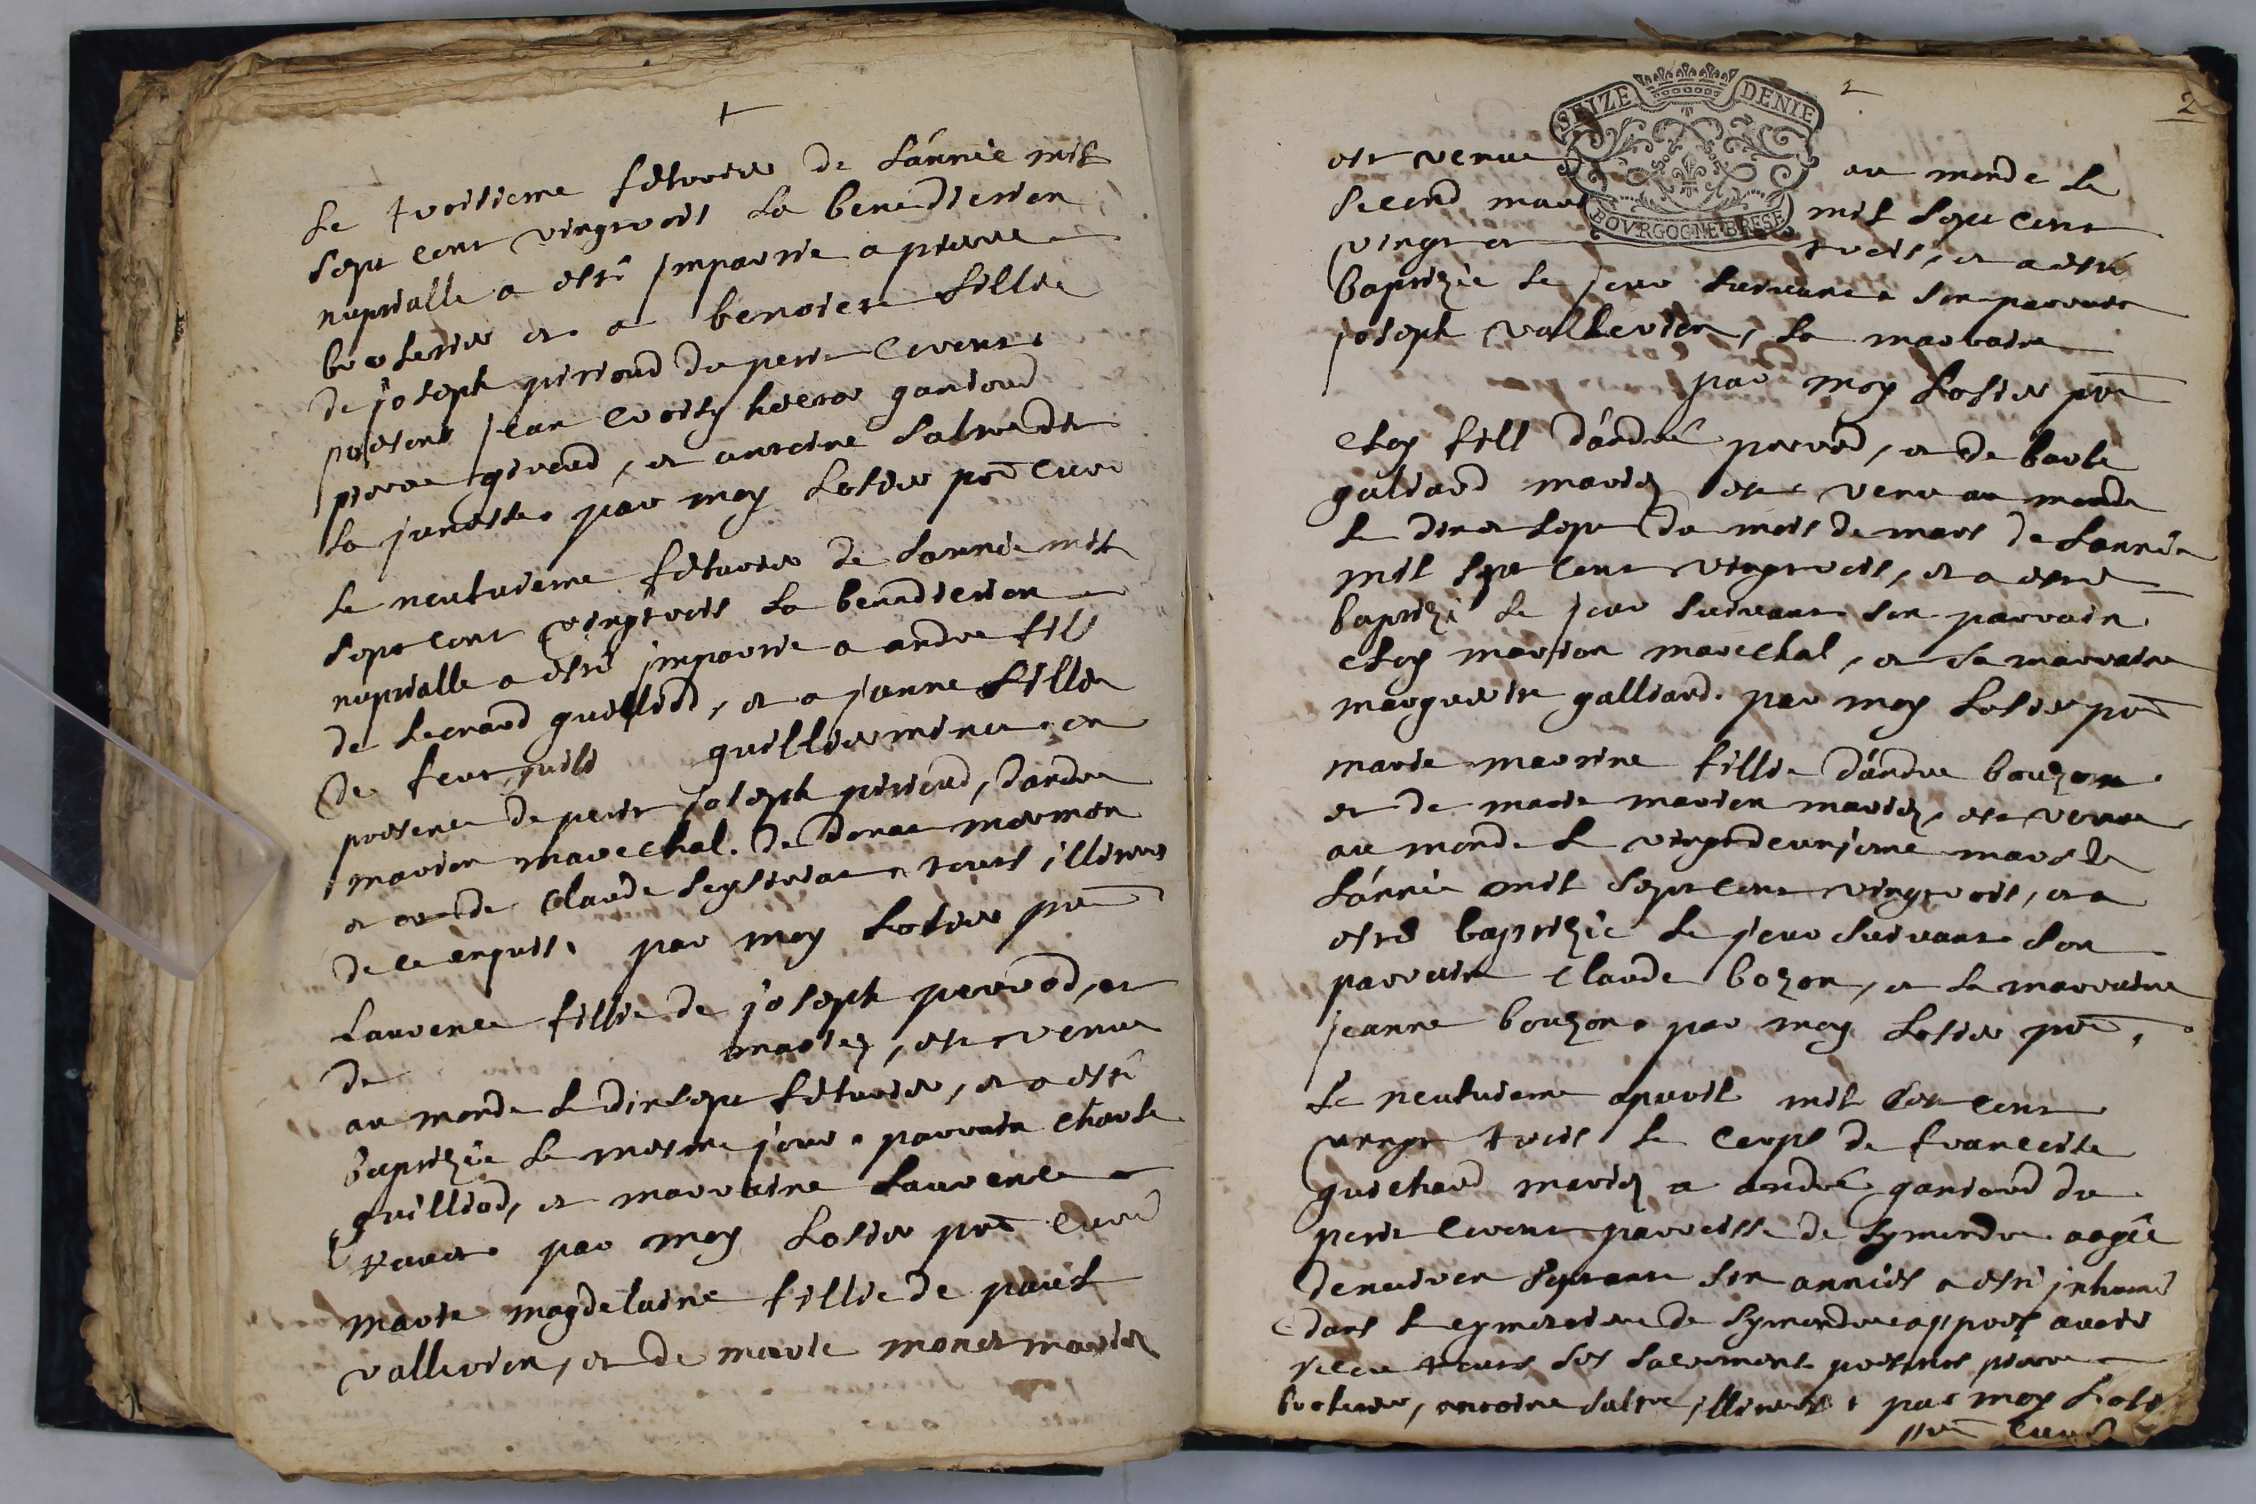 Le troisieme febvrier de L'année mil
sept cent vingtrois La benediction
nuptialle a esté impartie a pierre
brocherier et a benoiete fillie
de joseph piriond du petit Corent,
present jean Croisy hector gantoud
pierre giroud, et antoine Salve dit
La junesse. par moy Lostier pre curé
Le neufvieme febvrier de Lannée mil
sept cent vingtrois La benediction
nuptialle a esté impartie a andre fill
de Leonard guilliod, et a janne fillie
de feut guilli guilliermines. en
presence de petit joseph piriond, dandre
marion marechal. de donat mermon
et de Claude tous illiteres
de ce enquis. par moy Lostier pre
Laurence fillie de joseph perrod, et
de mariez, est venue
au monde Le dix sept febvrier, et a esté
baptizée Le mesme jour. parrain charle
guilliod, et marraine Laurence
par moy Lostier pre curé
marie magdelaine fillie de paul
vallerien, et de marie monet mariez
2
2
SEIZE DENIE
BOVRGOGNE BRESE
est venue au monde Le
second mars mil sept cent
vingt et trois, et a esté
baptizée Le jour suivant. son parrain
joseph vallerien, La marraine
par moy Lostier pre
Eloy fill d'andré perrod, et de barbe
galiard mariez est venu au monde
Le dix et sept du mois de mars de Lannée
mil sept cent vingtrois, et a esté
baptizé Le jour suivant son parrain
Eloy marion marechal, et sa marraine
marguerite galliard. par moy Lostier pre
marie marrine fillie d'andre bouzon
et de marie marion mariez, est venue
au monde Le vingtdeuxieme mars de
L'année mil sept cent vingtrois, et a
esté baptizée Le jour suivant son
parrain Claude bozon, et La marraine
jeanne bouzon. par moy Lostier pre,
Le neufvieme apvril mil sept cent
vingt trois Le Corps de francoise
guichard mariez a andré gantoud du
petit Corent parroisse de Symandre aagée
denviron septante six années a esté inhumé
dans Le cymetiere de Symandre appres avoir
receu touts ses sacrements presents pierre
brocherier, antoine salve illiteres. par moy Lostier
pre curé